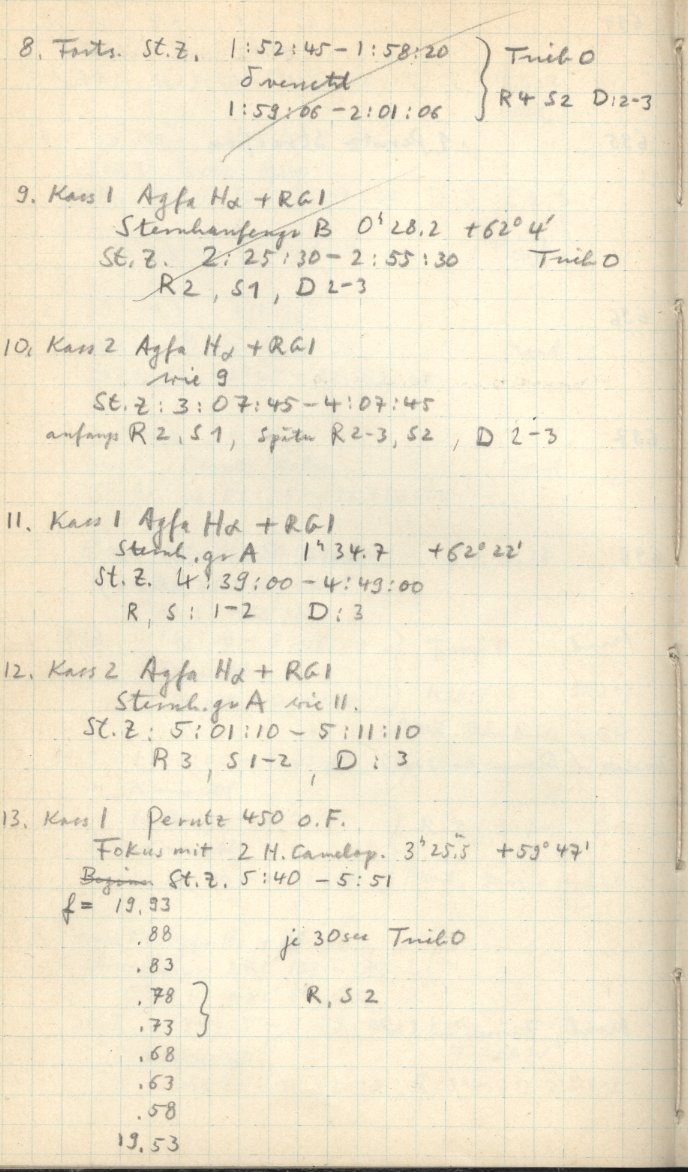 8. Forts. St.Z. 1:52:45 – 1:58:20 } Trieb 0
δ verstellt
1:59:06 – 2:01:06 R4 S2 D:2–3
9. Kass 1 Agfa Hα + RG1
Sternhaufengr B 0ʰ28.2 +62°4'
St.Z. 2:25:30 – 2:55:30 Trieb 0
R2, S1, D2–3
10. Kass 2 Agfa Hα + RG1
wie 9
St.Z: 3:07:45 – 4:07:45
anfangs R2, S1, später R2–3, S2, D 2–3
11. Kass 1 Agfa Hα + RG1
Sternh.gr A 1ʰ34.7 +62°22'
St.Z. 4:39:00 – 4:49:00
R, S: 1–2 D: 3
12. Kass 2 Agfa Hα + RG1
Sternh.gr A wie 11.
St.Z: 5:01:10 – 5:11:10
R3, S1–2, D: 3
13. Kass 1 Perutz 450 o.F.
Fokus mit 2 H. Camelop. 3ʰ25ᵐ.5 +59°47'
Beginn St.Z. 5:40 – 5:51
f = 19.93
.88 je 30 sec Trieb 0
.83
.78 } R, S 2
.73
.68
.63
.58
19.53